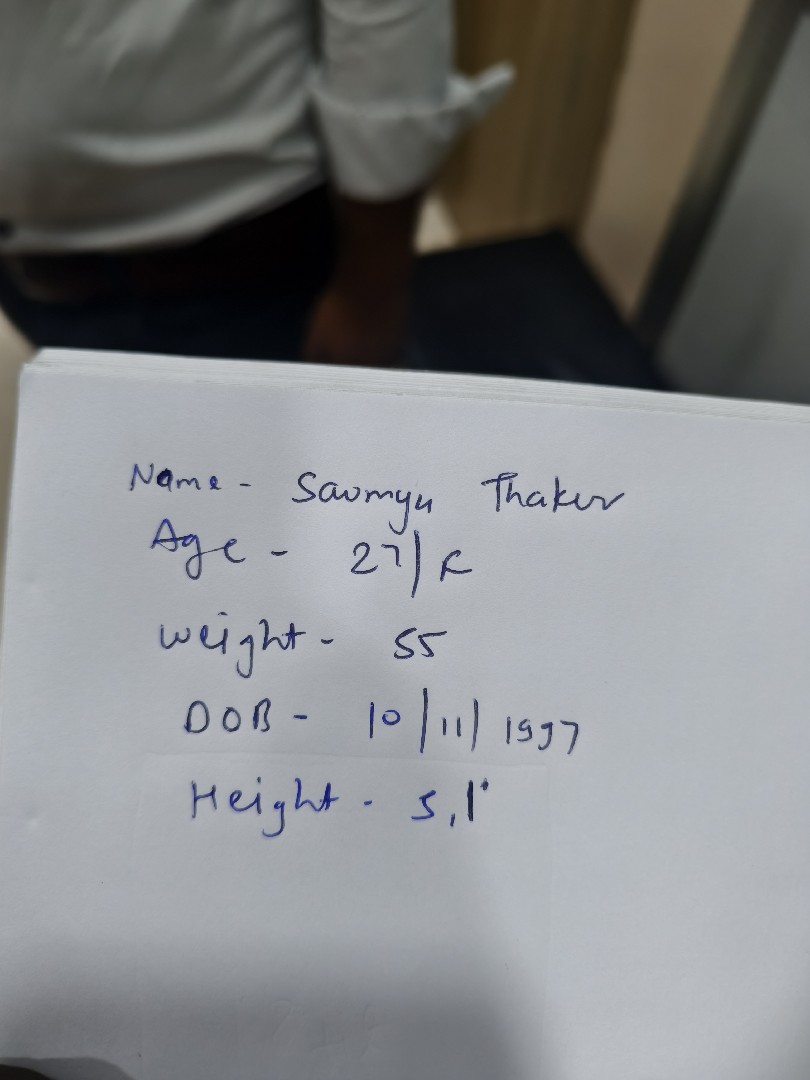 Name - Saumya Thaker
Age - 27/F
Weight - 55
DOB - 10/11/1997
Height - 5,1"